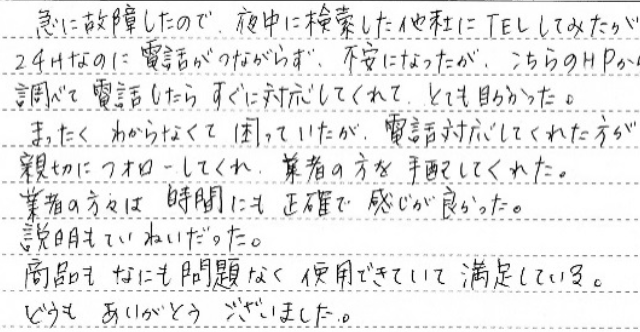 急に故障したので、夜中に検索した他社にTELしてみたが
24Hなのに電話がつながらず、不安になったが、こちらのHPから
調べて電話したらすぐに対応してくれて、とても助かった。
まったくわからなくて困っていたが、電話対応してくれた方が
親切にフォローしてくれ、業者の方を手配してくれた。
業者の方々は時間にも正確で感じが良かった。
説明もていねいだった。
商品もなにも問題なく使用できていて満足している。
どうもありがとうございました。